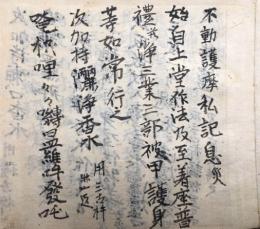 不動護摩私記 息災
始自上堂作法及至着座普
禮 次 淨三業三部被甲護身
等如常行之
次加持灑淨香水 用三古杵
唵枳哩々嚩日羅吽發吒